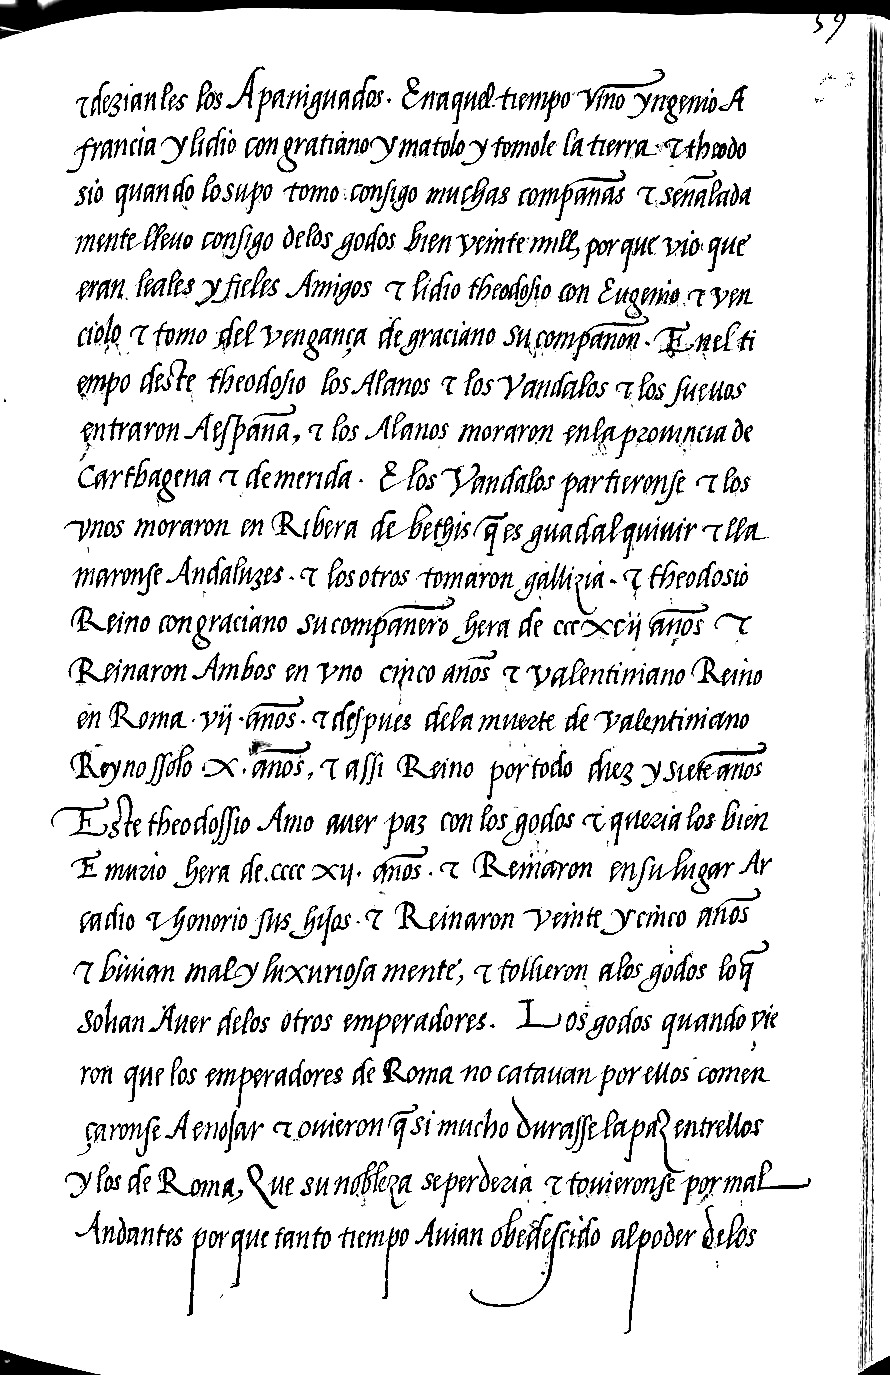 59
τ dezian les los Apaniguados. En aquel tiempo vino yngenio A
francia y lidio con gratiano y matolo y tomole la tierra τ theodo
sio quando lo supo tomo consigo muchas compañas τ señalada
mente lleuo consigo de los godos bien veinte mill, por que vio que
eran leales y fieles Amigos τ lidio theodosio con Eugenio τ ven
ciolo τ tomo del vengança de graciano su compañon. En el ti
empo deste theodosio los Alanos τ los Vandalos τ los sueuos
entraron A españa, τ los Alanos moraron en la prouincia de
Carthagena τ de merida. E los Vandalos partieronse τ los
vnos moraron en Ribera de bethis q̃ es guadalquiuir τ lla
maronse Andaluzes. τ los otros tomaron gallizia. τ theodosio
Reino con graciano su compañero hera de cccxcij años τ
Reinaron Ambos en vno cinco años τ valentiniano Reino
en Roma vij. años. τ despues de la muerte de valentiniano
Reyno ssolo .X. años, τ assi Reino por todo diez y siete años
Este theodossio Amo auer paz con los godos τ queria los bien
E murio hera de cccc xij. años. τ Reinaron en su lugar Ar
cadio τ honorio sus hijos. τ Reinaron veinte y cinco años
τ biuian mal y luxuriosa mente, τ tollieron a los godos lo q̃
solian Auer de los otros emperadores. Los godos quando vie
ron que los emperadores de Roma no catauan por ellos comen
çaronse A enojar τ ouieron q̃ si mucho durasse la paz entrellos
y los de Roma, Que su nobleza se perderia τ touieronse por mal
Andantes por que tanto tiempo Auian obedescido al poder de los